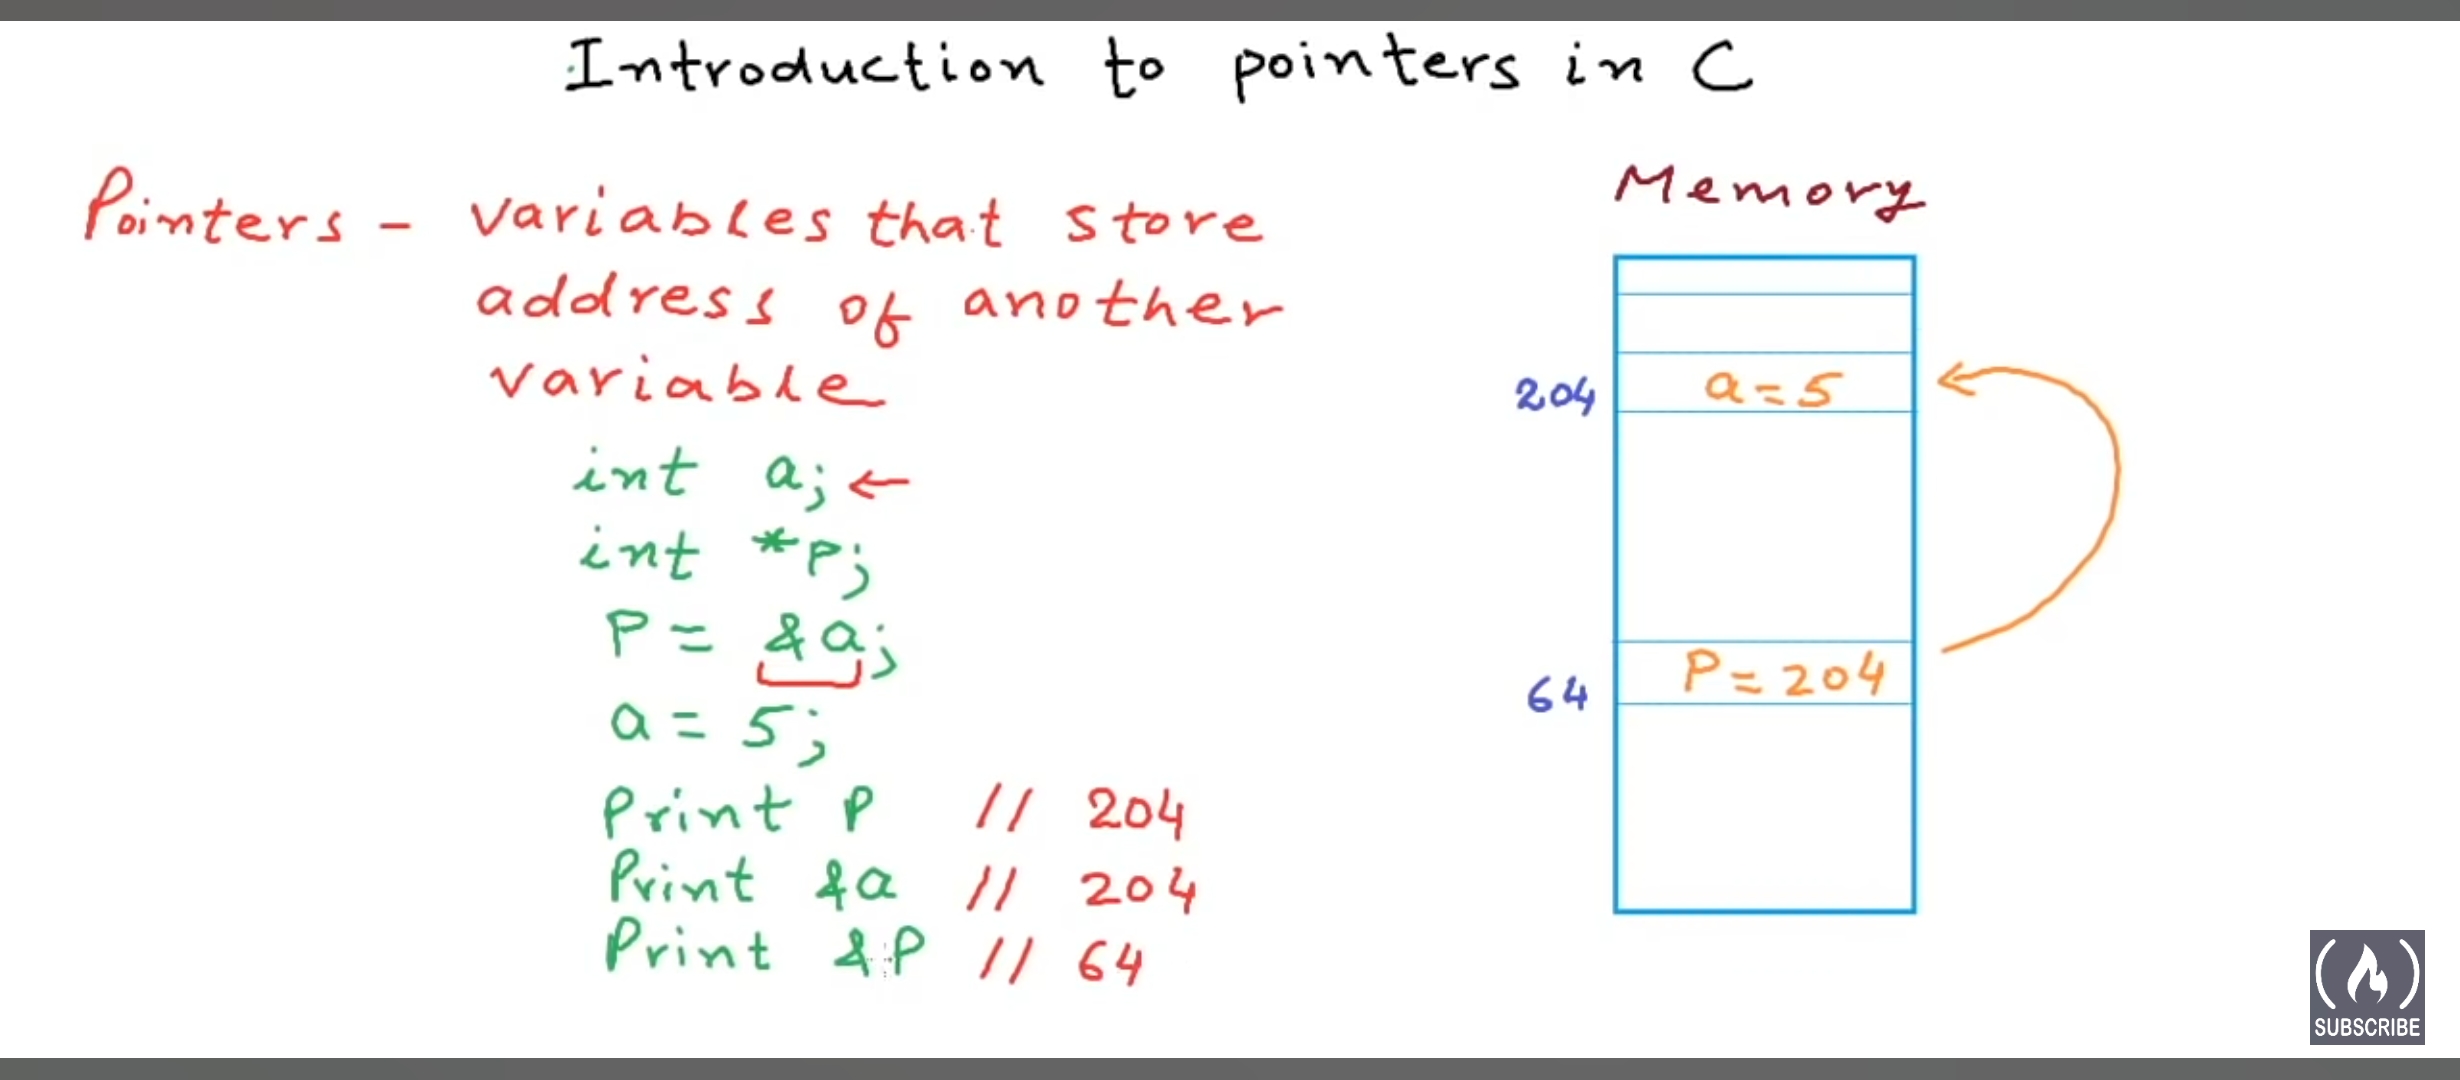 Introduction to pointers in C
Pointers - variables that store
address of another
variable
int a; ←
int *p;
P = &a;
a = 5;
Print P // 204
Print &a // 204
Print &P // 64
Memory
204 a = 5
64 P = 204
SUBSCRIBE